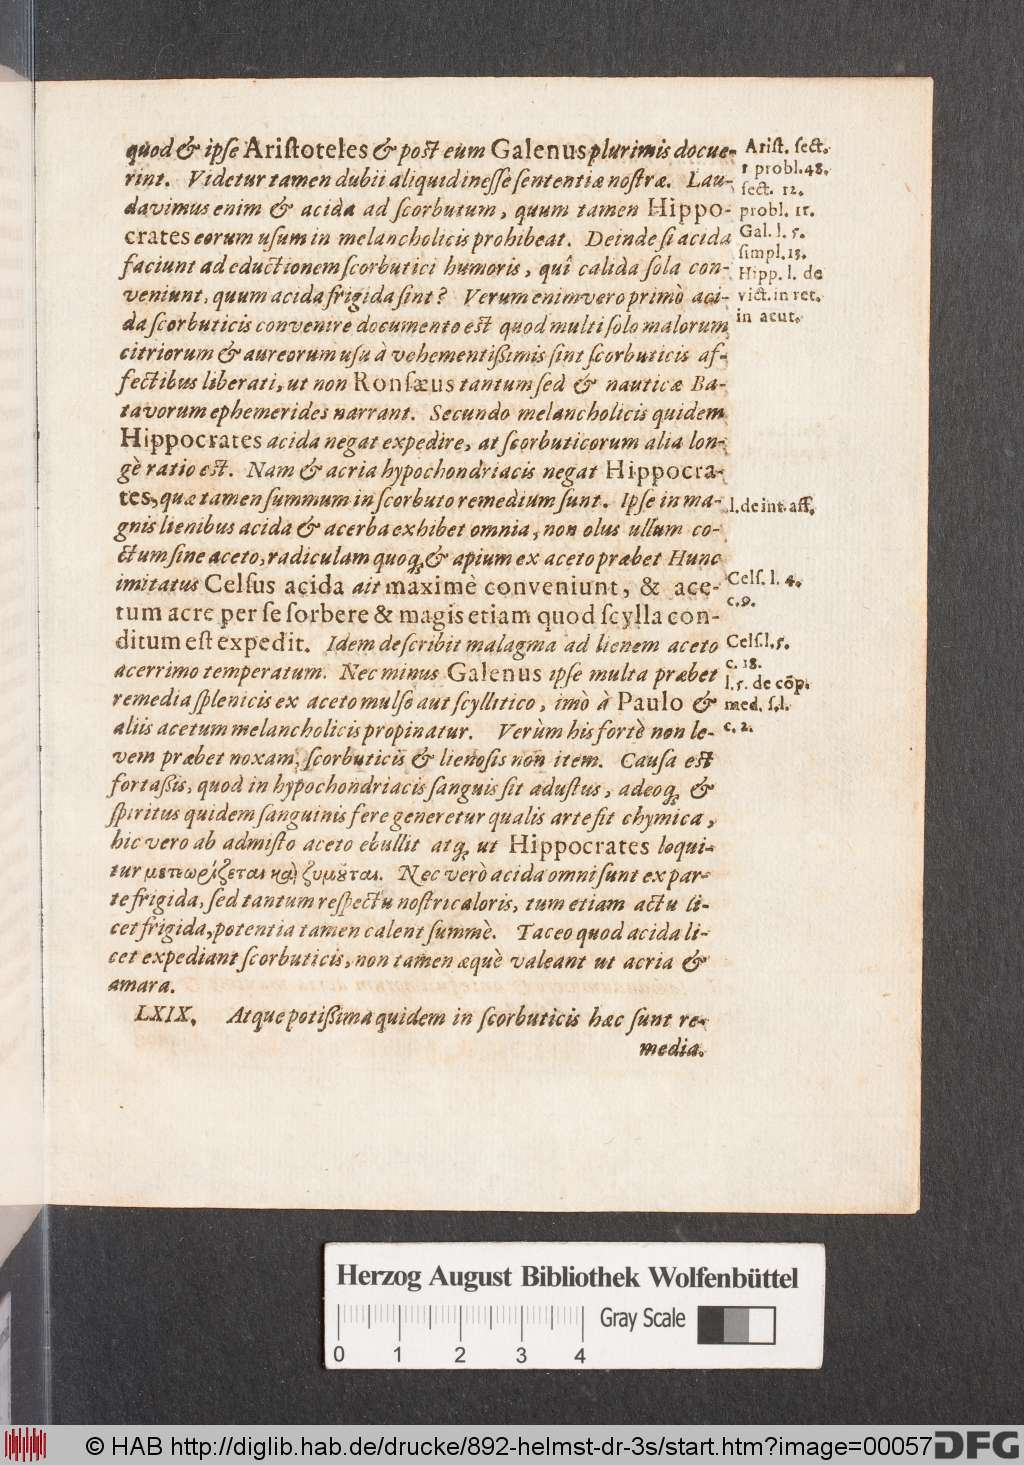 quod & ipſe Ariſtoteles & poſt eum Galenus plurimis docue-
rint. Videtur tamen dubii aliquid ineſſe ſententiæ noſtræ. Lau-
davimus enim & acida ad ſcorbutum, quum tamen Hippo-
crates eorum uſum in melancholicis prohibeat. Deinde ſi acida
faciunt ad eductionem ſcorbutici humoris, quî calida ſola con-
veniunt, quum acida frigida ſint? Verum enimvero primò aci-
da ſcorbuticis convenire documento eſt quod multi ſolo malorum
citriorum & aureorum uſu à vehementiſſimis ſint ſcorbuticis af-
fectibus liberati, ut non Ronſæus tantum ſed & nauticæ Ba-
tavorum ephemerides narrant. Secundo melancholicis quidem
Hippocrates acida negat expedire, at ſcorbuticorum alia lon-
gè ratio eſt. Nam & acria hypochondriacis negat Hippocra-
tes, quæ tamen ſummum in ſcorbuto remedium ſunt. Ipſe in ma-
gnis lienibus acida & acerba exhibet omnia, non olus ullum co-
ctum ſine aceto, radiculam quoq; & apium ex aceto præbet Hunc
imitatus Celſus acida ait maximè conveniunt, & ace-
tum acre per ſe ſorbere & magis etiam quod ſcylla con-
ditum eſt expedit. Idem deſcribit malagma ad lienem aceto
acerrimo temperatum. Nec minus Galenus ipſe multa præbet
remedia ſplenicis ex aceto mulſo aut ſcyllitico, imò à Paulo &
aliis acetum melancholicis propinatur. Verùm his fortè non le-
vem præbet noxam, ſcorbuticis & lienoſis non item. Cauſa eſt
fortaſſis, quod in hypochondriacis ſanguis ſit aduſtus, adeoq; &
ſpiritus quidem ſanguinis fere generetur qualis arte fit chymica,
hic vero ab admiſto aceto ebullit atq; ut Hippocrates loqui-
tur μετεωρίζεται καὶ ζυμοῦται. Nec verò acida omni ſunt ex par-
te frigida, ſed tantum reſpectu noſtri caloris, tum etiam actu li-
cet frigida, potentia tamen calent ſummè. Taceo quod acida li-
cet expediant ſcorbuticis, non tamen æquè valeant ut acria &
amara.
LXIX. Atque potiſſima quidem in ſcorbuticis hæc ſunt re-
media.
Ariſt. ſect.
1 probl. 48.
ſect. 12.
probl. 11.
Gal. l. 5.
ſimpl. 13.
Hipp. l. de
vict. in ret.
in acut.
l. de int. aff.
Celſ. l. 4.
c. 9.
Celſ. l. 5.
c. 18.
l. 5. de cõp.
med. ſ. l.
c. 2.
Herzog August Bibliothek Wolfenbüttel
Gray Scale
0 1 2 3 4
© HAB http://diglib.hab.de/drucke/892-helmst-dr-3s/start.htm?image=00057
DFG